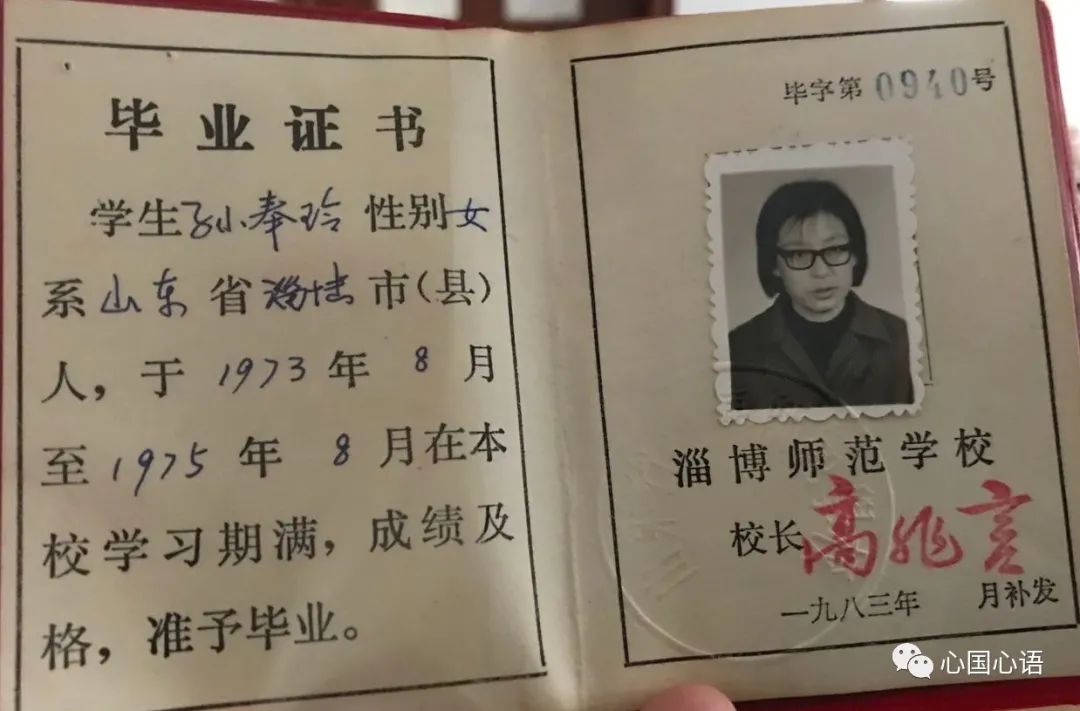 毕业证书
学生孙奉玲性别女
系山东省淄博市(县)
人，于1973年8月
至1975年8月在本
校学习期满，成绩及
格，准予毕业。
毕字第0940号
淄博师范学校
校长高兆言
一九八三年 月补发
心国心语